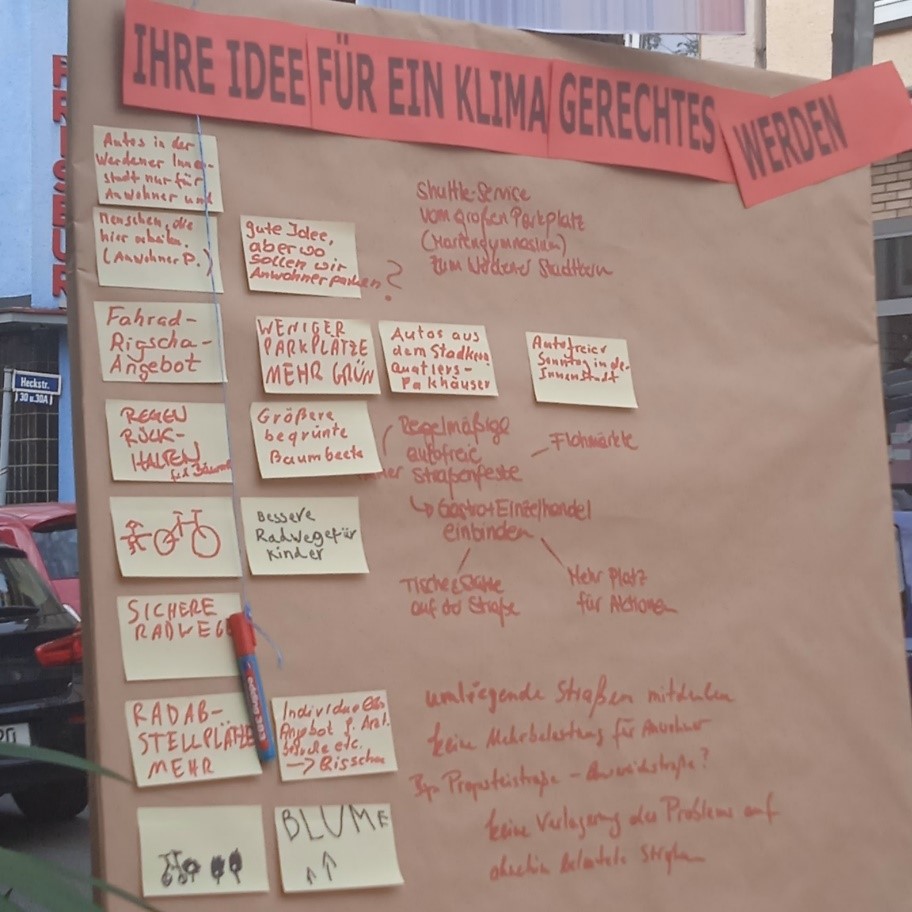 IHRE IDEE FÜR EIN KLIMA GERECHTES WERDEN
FRISEUR
Heckstr.
30 u.30A
Autos in der
Werdener Innen-
stadt nur für
Anwohner und
Menschen, die
hier arbeiten.
(Anwohner P.)
gute Idee,
aber wo
sollen wir
Anwohner parken?
Shuttle-Service
vom großen Parkplatz
zum Werdener Stadtkern
Fahrad-
Rigscha-
Angebot
WENIGER
PARKPLÄTZE
MEHR GRÜN
Autos aus
dem Stadkern
Quatiers-
Pakhäuser
Autofreier
Sonntag in der
Innenstadt
REGEN
RÜCK-
HALTEN
für Bäume
Größere
begrünte
Baumbeete
Regelmäßige
autofreie
Straßenfeste
Flohmärkte
Gastro+Einzelhandel
einbinden
Tische+Stühle
auf der Straße
Mehr Platz
für Aktionen
Bessere
Radwege für
Kinder
SICHERE
RADWEGE
edding
RADAB-
STELLPLÄTZE
MEHR
Individuelles
Angebot f. Arzt.
besuche etc.
umliegende Straßen mitdenken
keine Mehrbelastung für Anwohner
Propsteistraße
keine Verlagerung des Problems auf
ohnehin belastete Straßen
BLUME